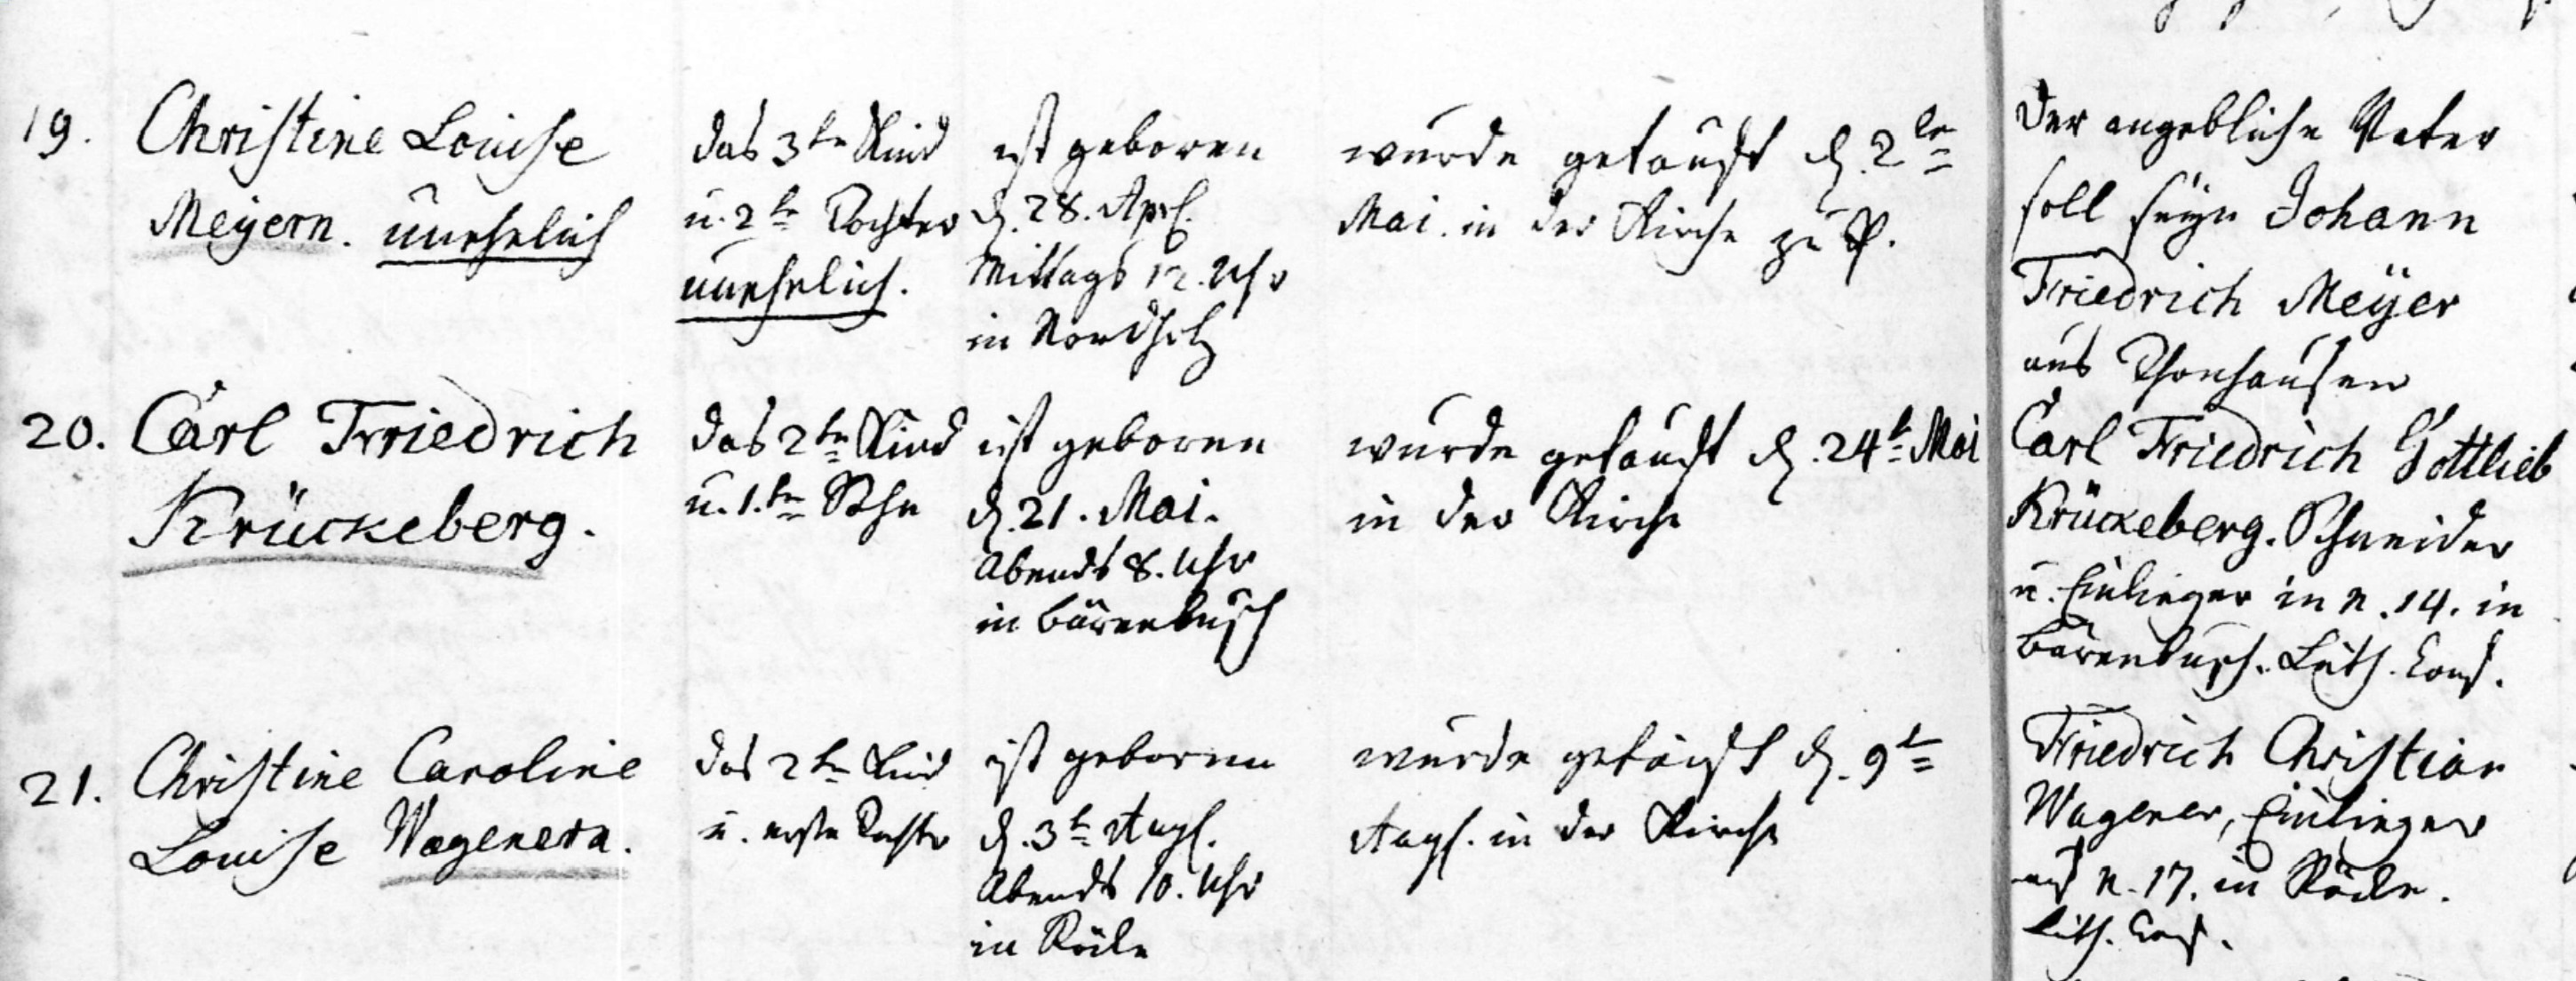 19.
Christine Louise
Meÿern. unehelich
das 3te Kind
u. 2te Tochter
unehelich.
ist geboren
d. 28. Apr.
Mittags 12. Uhr
in Nordholz
wurde getauft d. 2te
Mai. in der Kirche zu P.
Der angebliche Vater
soll seÿn Johann
Friedrich Meÿer
aus
20.
Carl Friedrich
Krückeberg.
das 2te Kind
u. 1.te Sohn
ist geboren
d. 21. Mai.
Abends 8. Uhr
in Bärenbusch
wurde getauft d. 24t Mai
in der Kirche
Carl Friedrich Gottlieb
Krückeberg. Schneider
u. Einlieger in N. 14. in
Bärenbusch. Luth. Conf.
21.
Christine Caroline
Louise Wagenern.
das 2te Kind
u. erste Tochter
ist geboren
d. 3t Aug.
Abends 10. Uhr
in
wurde getauft d. 9t
Aug. in der Kirche
Friedrich Christian
Wagener, Einlieger
auf N. 17. in
Luth. Conf.